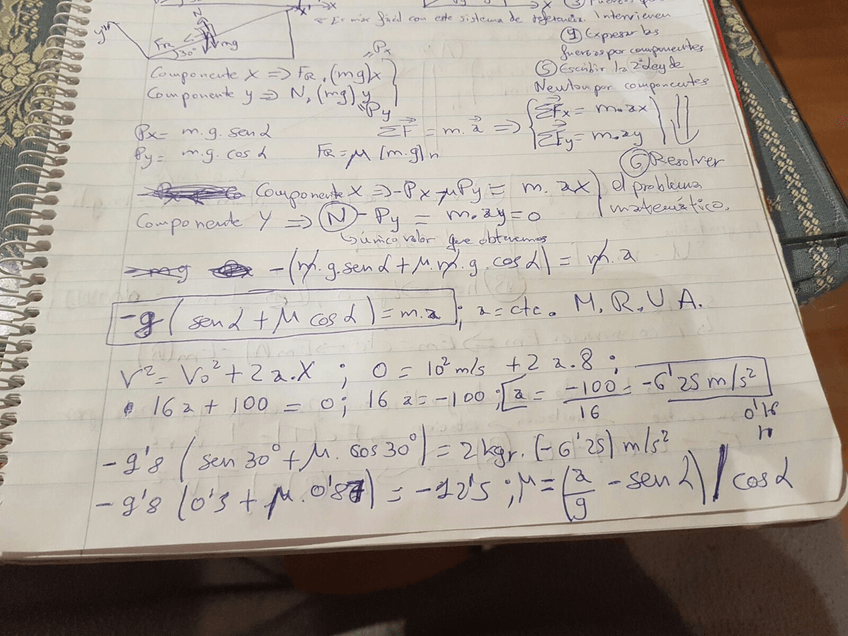 ③ Fuerzas que
← Es más fácil con este sistema de referencia. Intervienen
④ Expresar las
fuerzas por componentes
⑤ Escribir la 2ª ley de
Newton por componentes
y
X
N
FR
mg
30°
Px
Componente X => FR, (mg)x
Componente y => N, (mg)y
Py
Px = m.g.sen α
Py = m.g.cos α
ΣF = m.a => { ΣFx = m.ax
ΣFy = m.ay
FR = μ (m.g)
⑥ Resolver
el problema
matemático.
Componente X => -Px - μPy = m.ax
Componente Y => N - Py = m.ay = 0
↳ único valor que obtenemos
-(m.g.sen α + μ.m.g.cos α) = m.a
-g (sen α + μ cos α) = m.a ; a = cte. M.R.U.A.
V² = V₀² + 2a.X ; 0 = 10² m/s + 2 a.8 ;
16a + 100 = 0; 16 a = -100 ; a = -100/16 = -6'25 m/s²
0'16
-9'8 (sen 30° + μ. cos 30°) = 2 kgr. (-6'25) m/s²
-9'8 (0'5 + μ.0'87) = -12'5 ; μ = (a/g - sen α) / cos α